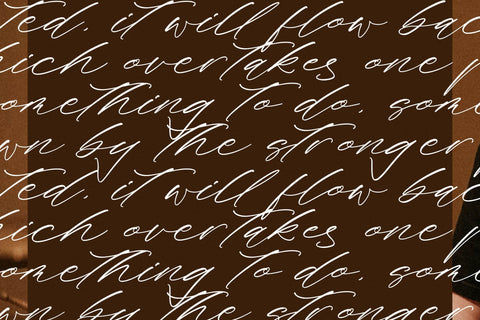 ted, it will flow bac
hich overtakes one p
omething to do, some
wn by the stronger
ted, it will flow bac
hich overtakes one p
omething to do, some
wn by the stronger